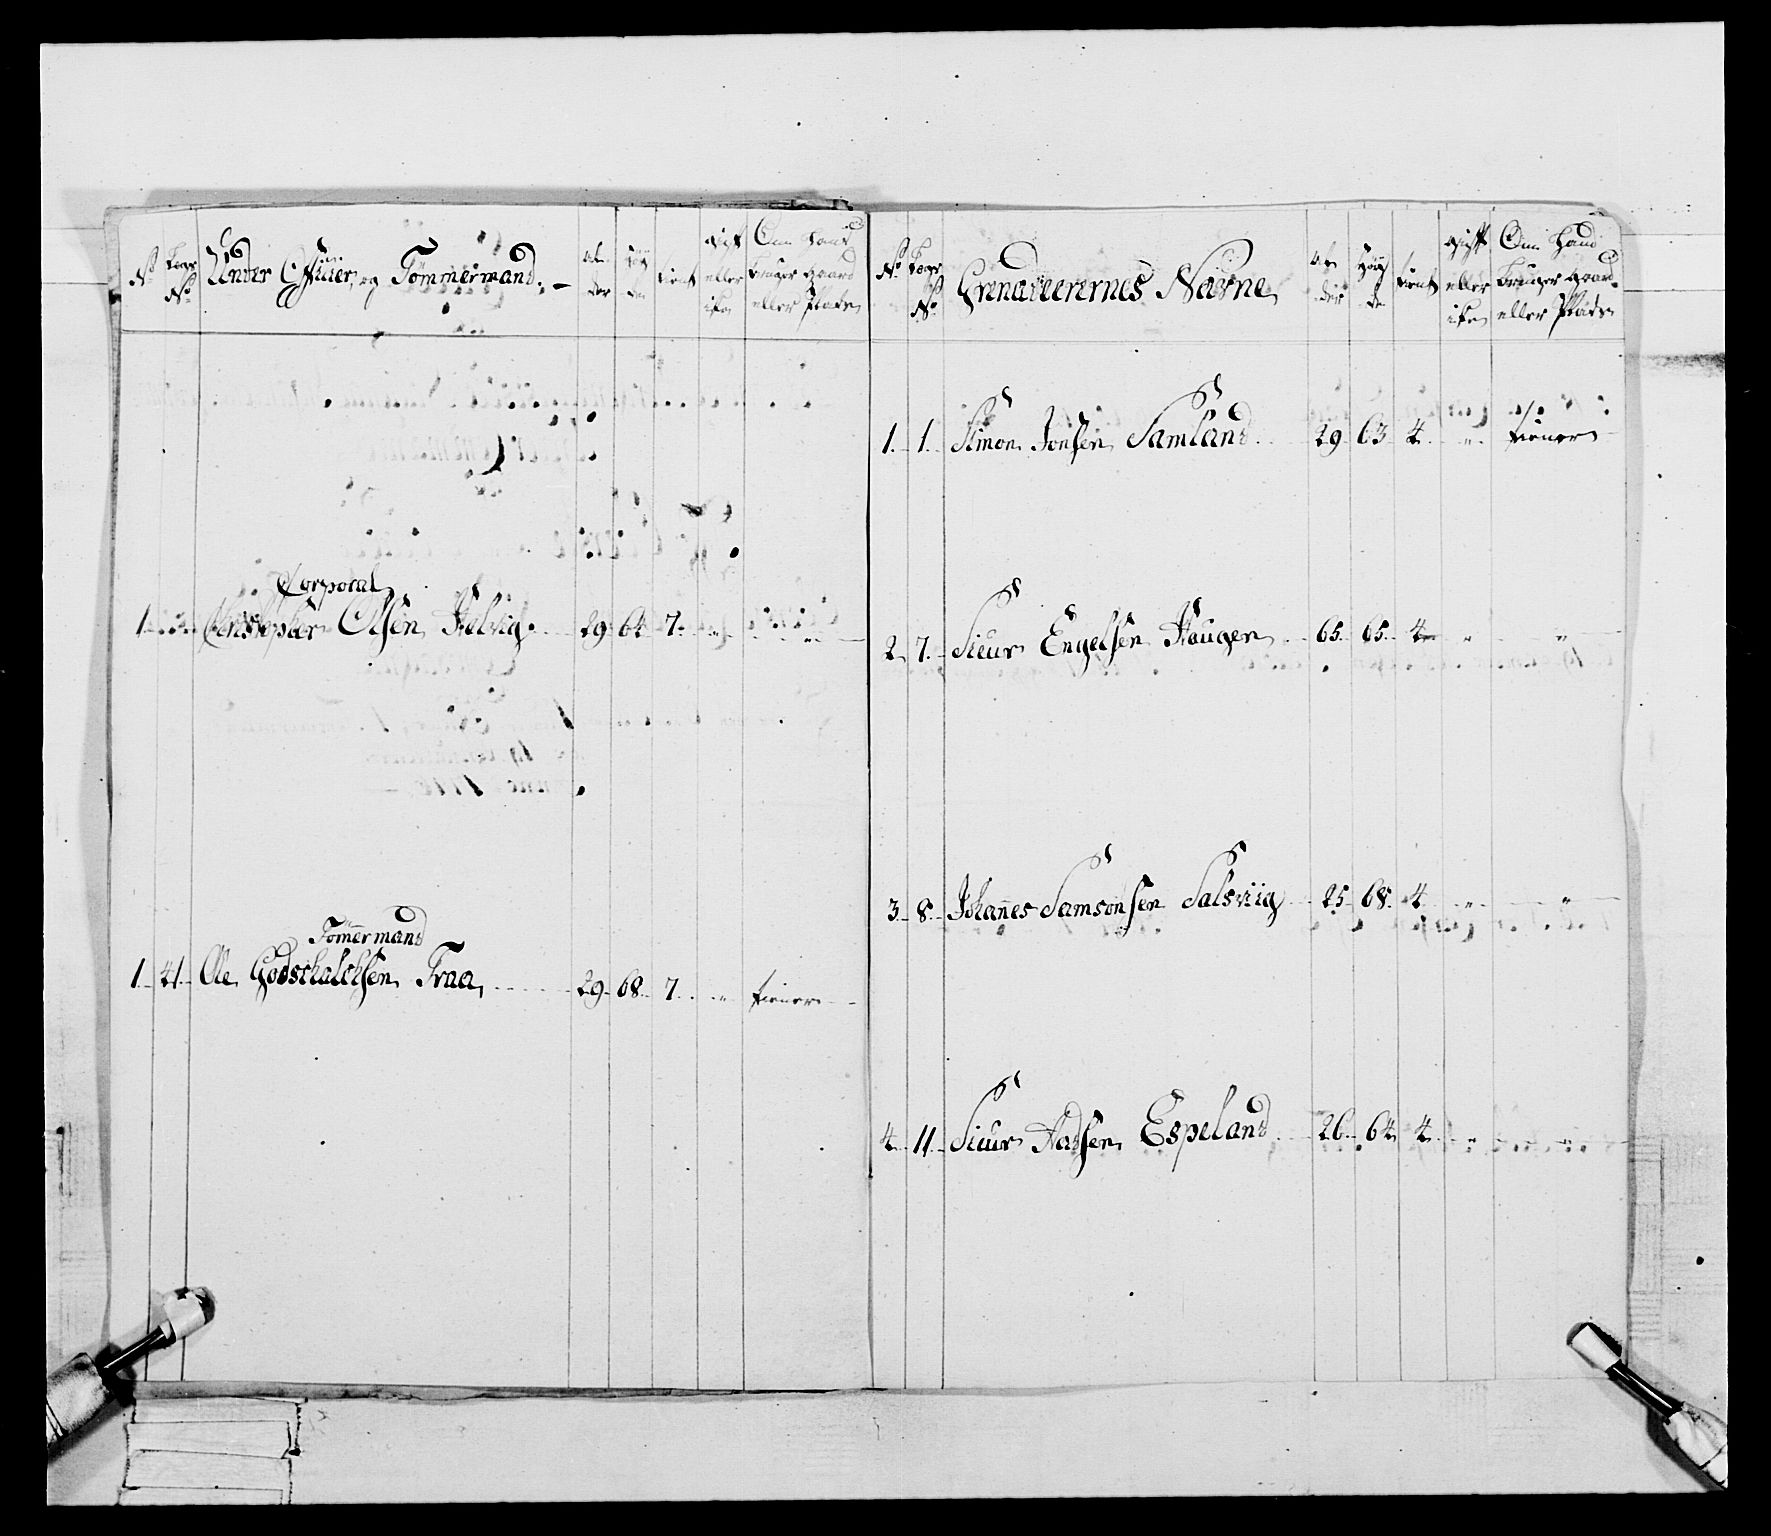 No Lægs No Under Officier, og Tømmermand. Al der Høy de tient gift eller ikke Om hand bruger gaard eller Plads
Corporal
1 Christopher Olsen Helvig 29 64 7 " "
Tømmermand
1 41 Ole Godschalchsen Traa, 29 68 7 " tiener
No Lægs No Grenadeerernes Navne Al der Høy de tient gift eller ikke Om hand bruger gaard eller Plads
1. 1. Simon Jonsen Samland 29 63 4 " tiener
2 7. Siur Engelsen Hougen 65 65 4 " "
3 8. Johannes Samsonsen Salsviig 25 68 4 " "
4 11 Siur Hadsen Espeland 26 64 4 " "